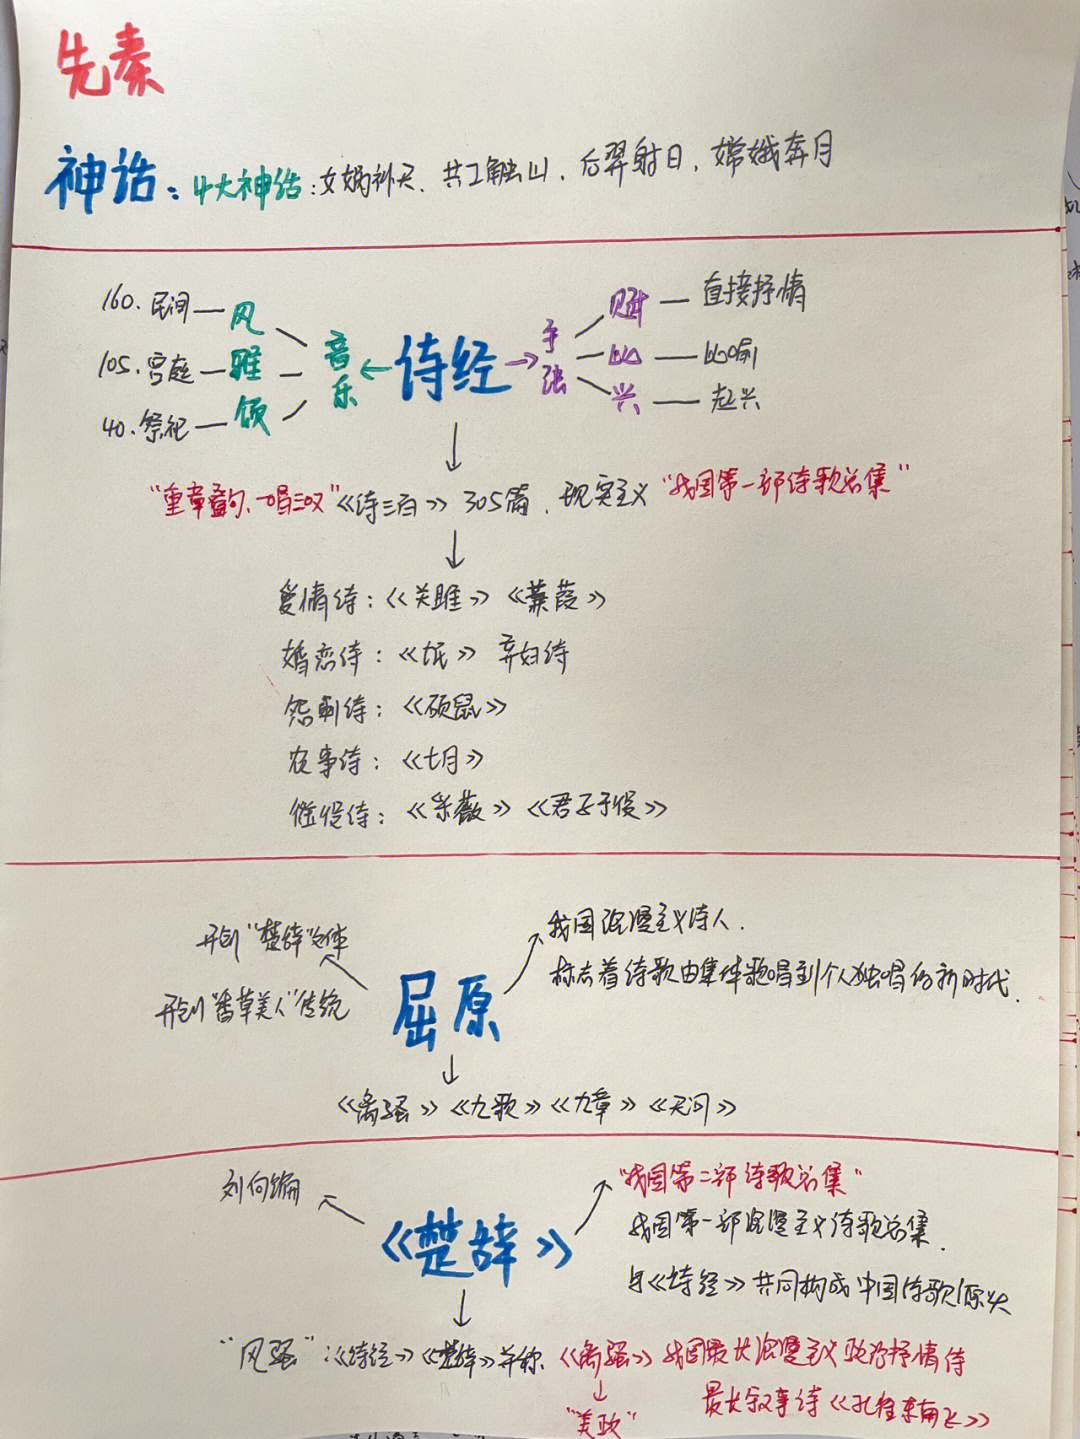 先秦
神话：4大神话：女娲补天、共工触山、后羿射日、嫦娥奔月
160.民间—风
105.宫庭—雅
40.祭祀—颂
音乐←诗经→手法
赋—直接抒情
比—比喻
兴—起兴
“重章叠句、一唱三叹”《诗三百》305篇、现实主义“我国第一部诗歌总集”
爱情诗：《关雎》《蒹葭》
婚恋诗：《氓》弃妇诗
怨刺诗：《硕鼠》
农事诗：《七月》
徭役诗：《采薇》《君子于役》
开创“楚辞”文体
开创“香草美人”传统
屈原
我国浪漫主义诗人.
标志着诗歌由集体歌唱到个人独唱的新时代.
《离骚》《九歌》《九章》《天问》
刘向编
《楚辞》
“我国第二部诗歌总集”
我国第一部浪漫主义诗歌总集.
与《诗经》共同构成中国诗歌源头
“风骚”：《诗经》《楚辞》并称.《离骚》我国最大浪漫主义政治抒情诗
“美政”
最长叙事诗《孔雀东南飞》